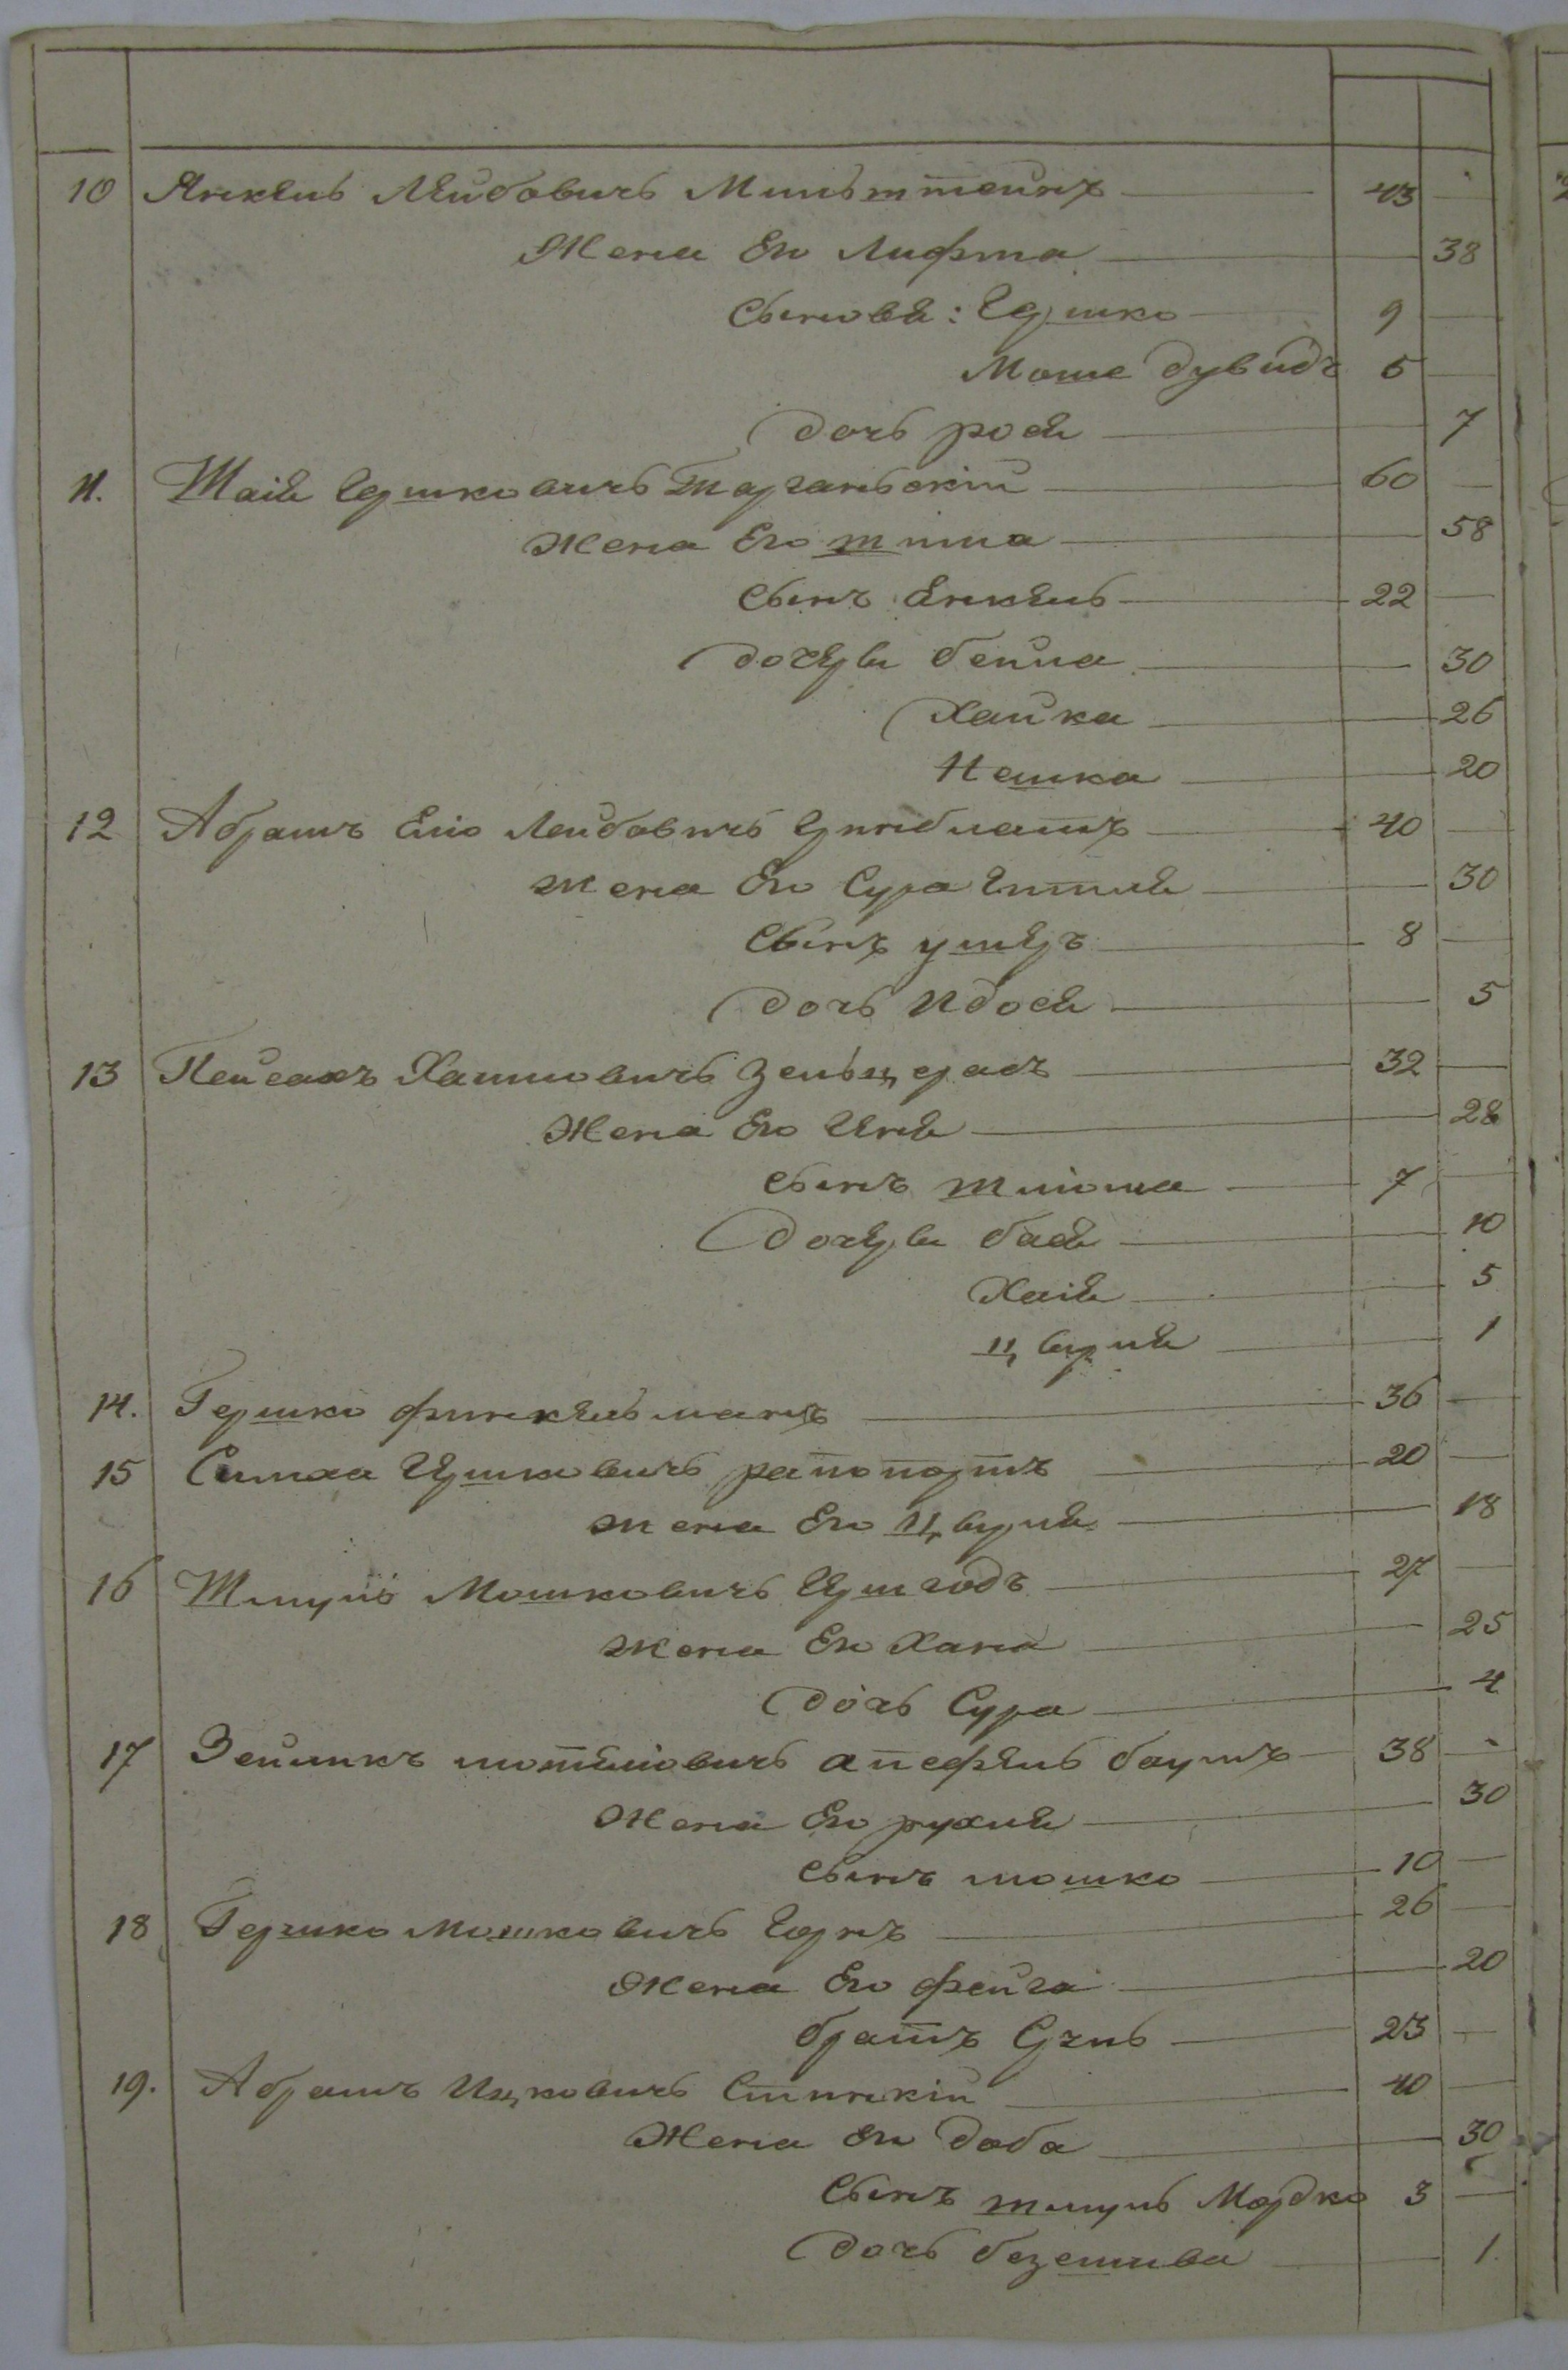 10 Янкель Лейбовичъ Мильштейнъ 43 —
Жена Его Лифша — 38
Сыновья: Гершко 9 —
Моше Дувидъ 5 —
дочь рося — 7
11. Шаія Гершковичъ Таргансьскій 60 —
Жена Его — 58
Сынъ Янкель 22 —
дочери бейла — 30
Хайка — 26
Пешка — 20
12 Абрамъ Еліо Лейбовичъ Гринблатъ 40 —
жена Его Сура Гитля — 30
Сынъ ушеръ 8 —
дочь Идося — 5
13 Пейсахъ Хаимовичъ Зельцерасъ 32 —
Жена Его Геня — 28
сынъ шліома 7 —
дочери бася — 10
Хаія — 5
цвирля — 1
14. Гершко финкельманъ 36 —
15 Симха Гершковичъ рапопортъ 20 —
жена Его Цвирля — 18
16 Шмуль Мошковичъ Гершгодъ 27 —
жена Его Хана — 25
дочь Сура — 4
17 Зеликъ мотеліовичъ апефель баумъ 38 —
Жена Его рухля — 30
сынъ мошко 10 —
18 Гершко Мошковичъ Горнъ 26 —
Жена Его фейга — 20
братъ Сруль 23 —
19. Абрамъ Ицковичъ Липскій 40 —
Жена Его доба — 30
Сынъ шмуль Мордко 3 —
дочь безешива — 1